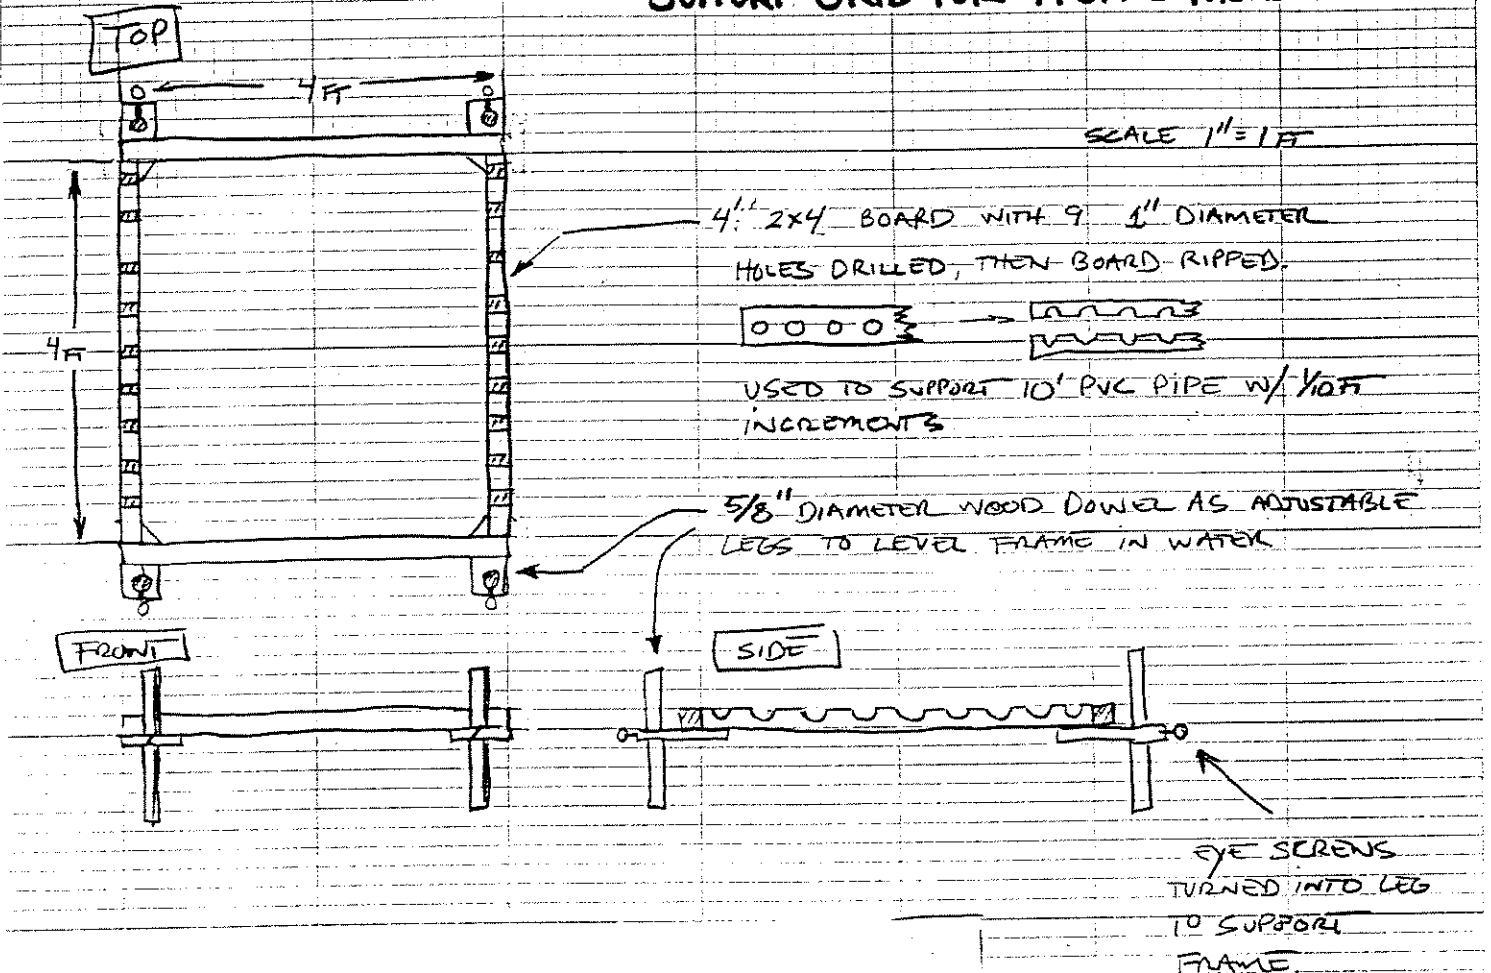 SUPPORT GRID FOR
TOP
4 FT
SCALE 1" = 1 FT
4' 2x4 BOARD WITH 9 1" DIAMETER
HOLES DRILLED, THEN BOARD RIPPED.
4 FT
USED TO SUPPORT 10' PVC PIPE W/ 1/10 FT
INCREMENTS
5/8" DIAMETER WOOD DOWEL AS ADJUSTABLE
LEGS TO LEVEL FRAME IN WATER
FRONT
SIDE
EYE SCREWS
TURNED INTO LEG
TO SUPPORT
FRAME